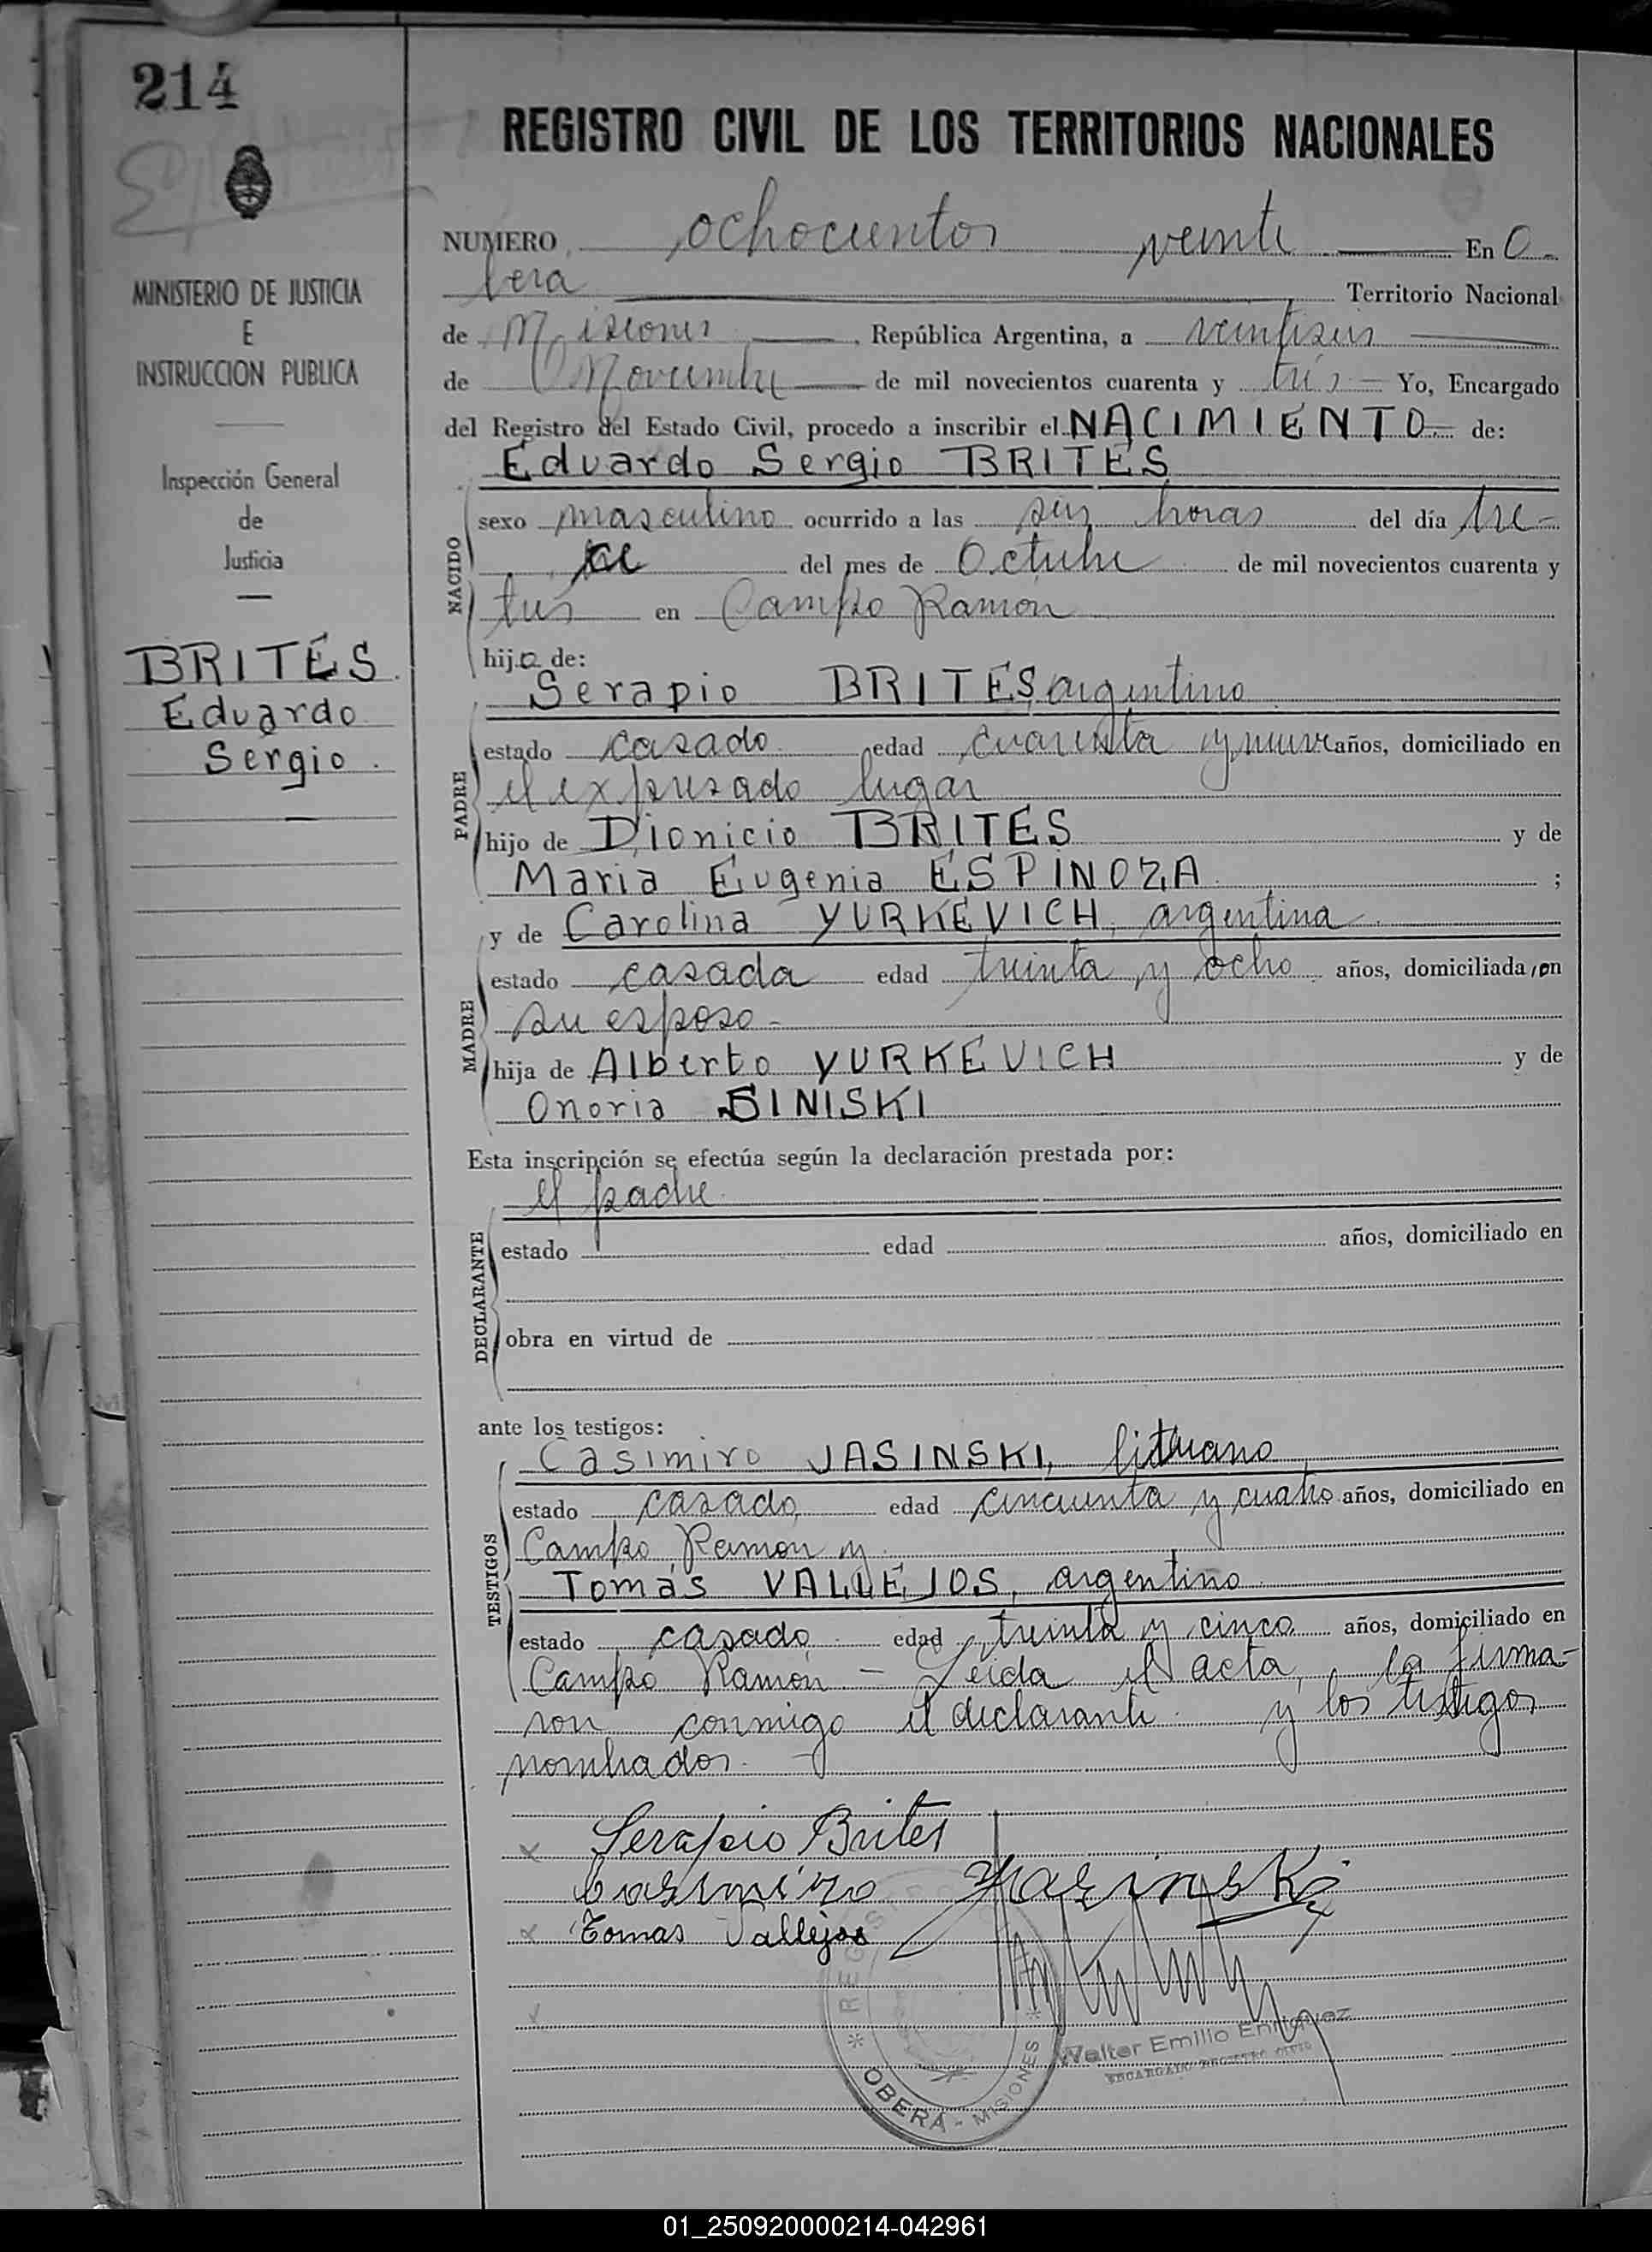 214
MINISTERIO DE JUSTICIA
E
INSTRUCCION PUBLICA
Inspección General
de
Justicia
BRITES
Eduardo
Sergio
REGISTRO CIVIL DE LOS TERRITORIOS NACIONALES
NUMERO ochocientos veinte En O-
bera Territorio Nacional
de Misiones, República Argentina, a veintiseis
de Noviembre de mil novecientos cuarenta y tres Yo, Encargado
del Registro del Estado Civil, procedo a inscribir el NACIMIENTO de:
Eduardo Sergio BRITES
NACIDO
sexo masculino ocurrido a las seis horas del día tre-
ce del mes de Octubre de mil novecientos cuarenta y
tres en Campo Ramon
hijo de:
Serapio BRITES, argentino
PADRE
estado casado edad cuarenta y nueve años, domiciliado en
el expresado lugar
hijo de Dionicio BRITES y de
Maria Eugenia ESPINOZA ;
y de Carolina YURKEVICH, argentina
MADRE
estado casada edad treinta y ocho años, domiciliada, en
su esposo-
hija de Alberto YURKEVICH y de
Onoria SINISKI
Esta inscripción se efectúa según la declaración prestada por:
el padre
DECLARANTE
estado edad años, domiciliado en
obra en virtud de
ante los testigos:
Casimiro JASINSKI, lituano
TESTIGOS
estado casado, edad cincuenta y cuatro años, domiciliado en
Campo Ramon y
Tomás VALLEJOS, argentino
estado casado edad treinta y cinco años, domiciliado en
Campo Ramón - Leida el acta, la firma-
ron conmigo el declarante y los testigos
nombrados.
Serapio Brites
Casimiro Jasinski
Tomas Vallejos
OBERA - MISIONES
Walter Emilio Enriquez
ENCARGADO REGISTRO CIVIL
01_250920000214-042961